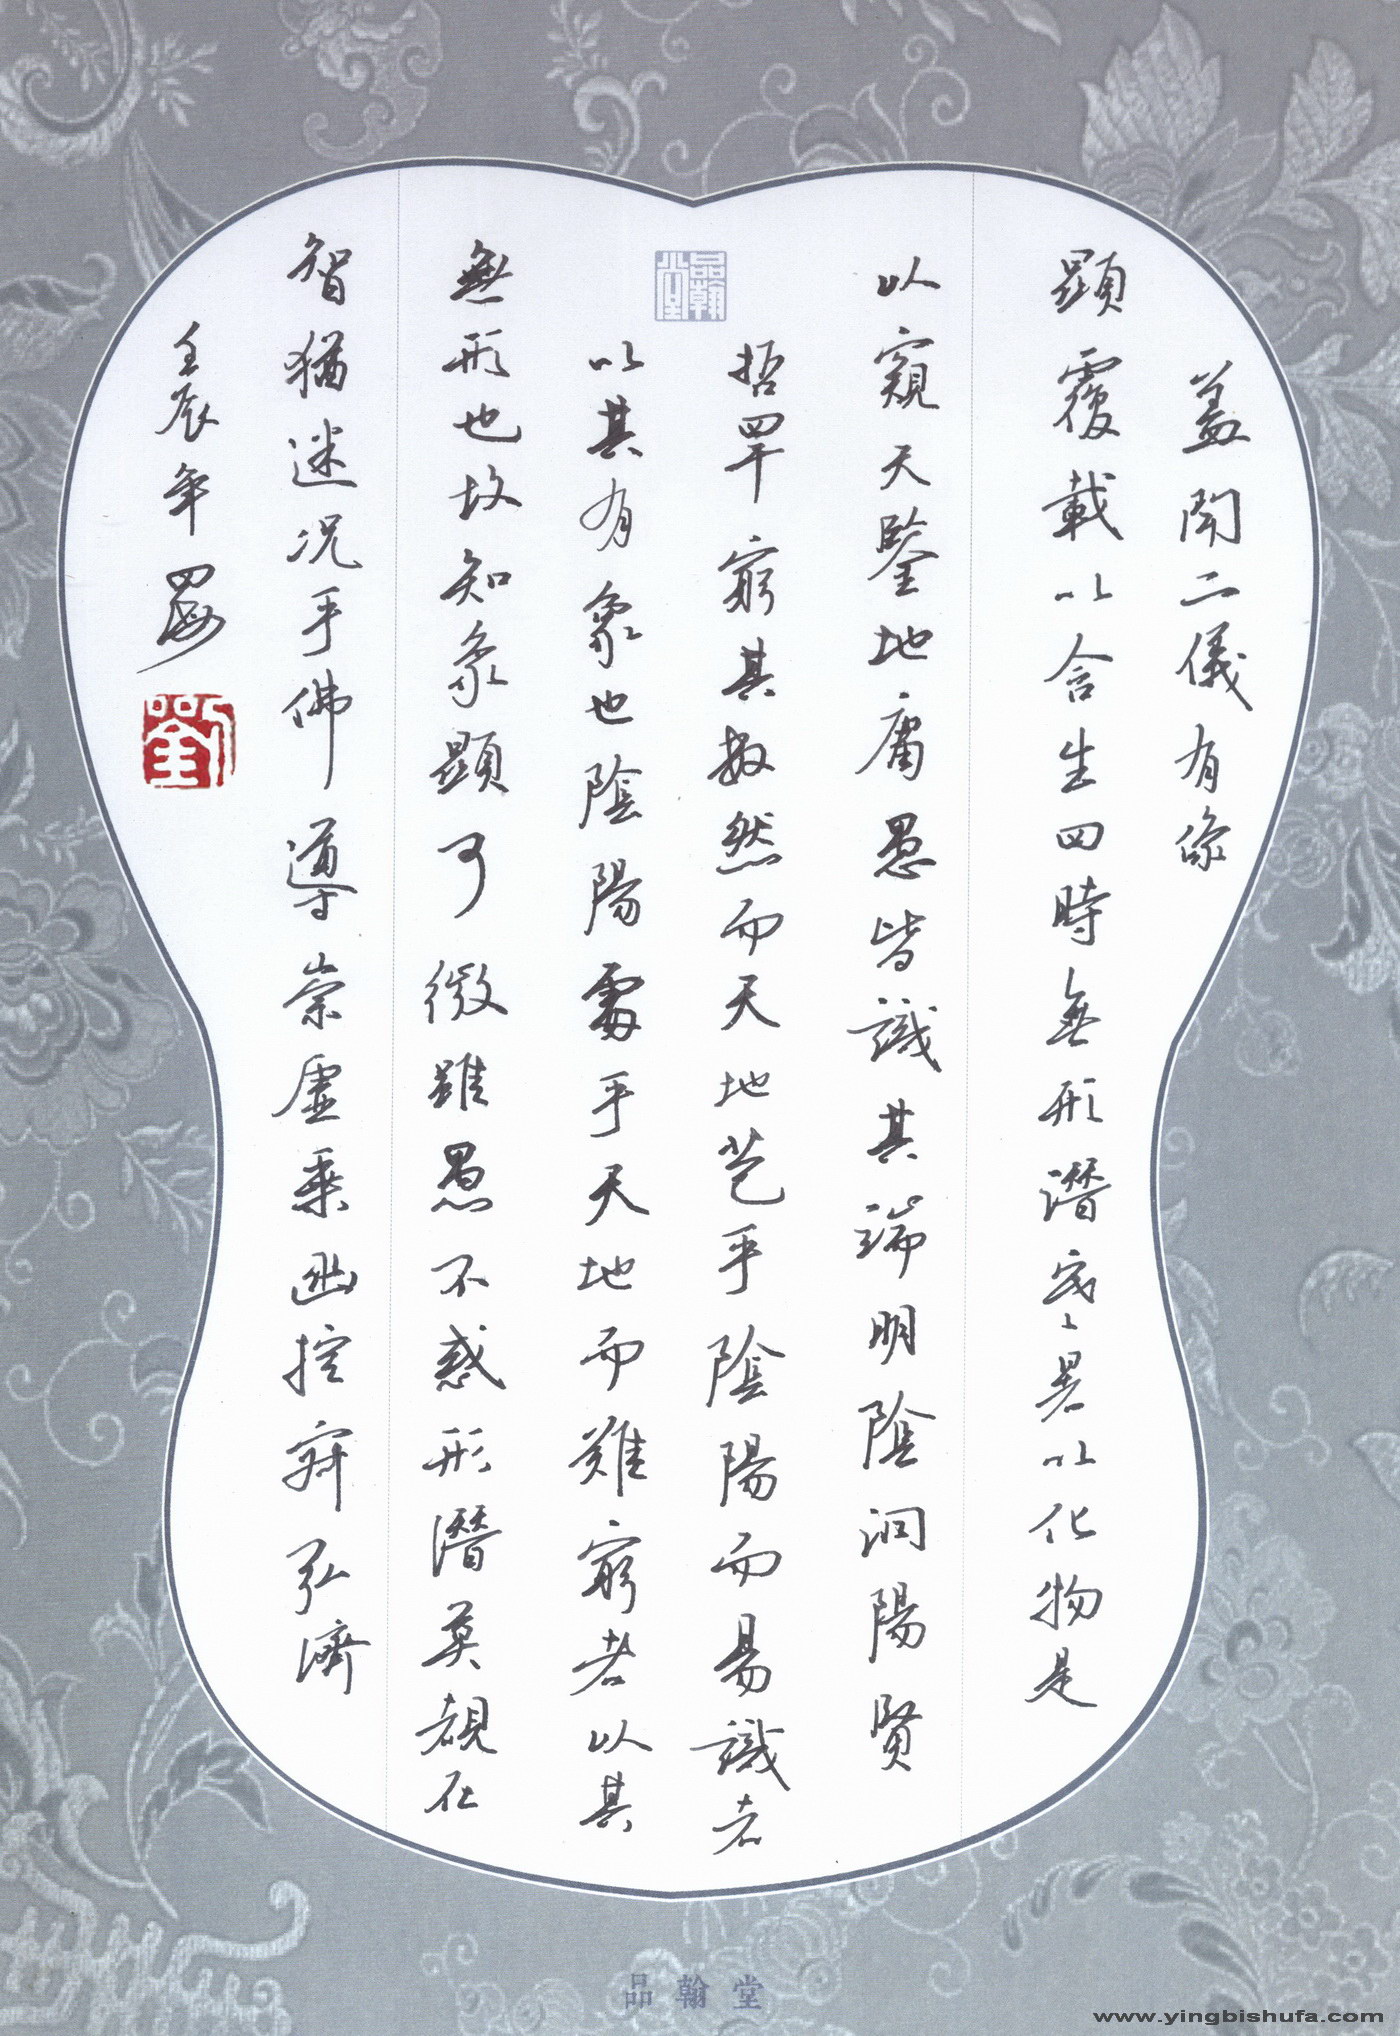 蓋聞二儀有像
顯覆載以含生四時無形潛寒暑以化物是
以窺天鑒地庸愚皆識其端明陰洞陽賢
哲罕窮其數然而天地苞乎陰陽而易識者
品翰堂
以其有象也陰陽處乎天地而難窮者以其
無形也故知象顯可徵雖愚不惑形潛莫覩在
智猶迷況乎佛導崇虛乘幽控寂弘濟
壬辰年四海
劉
品翰堂
www.yingbishufa.com